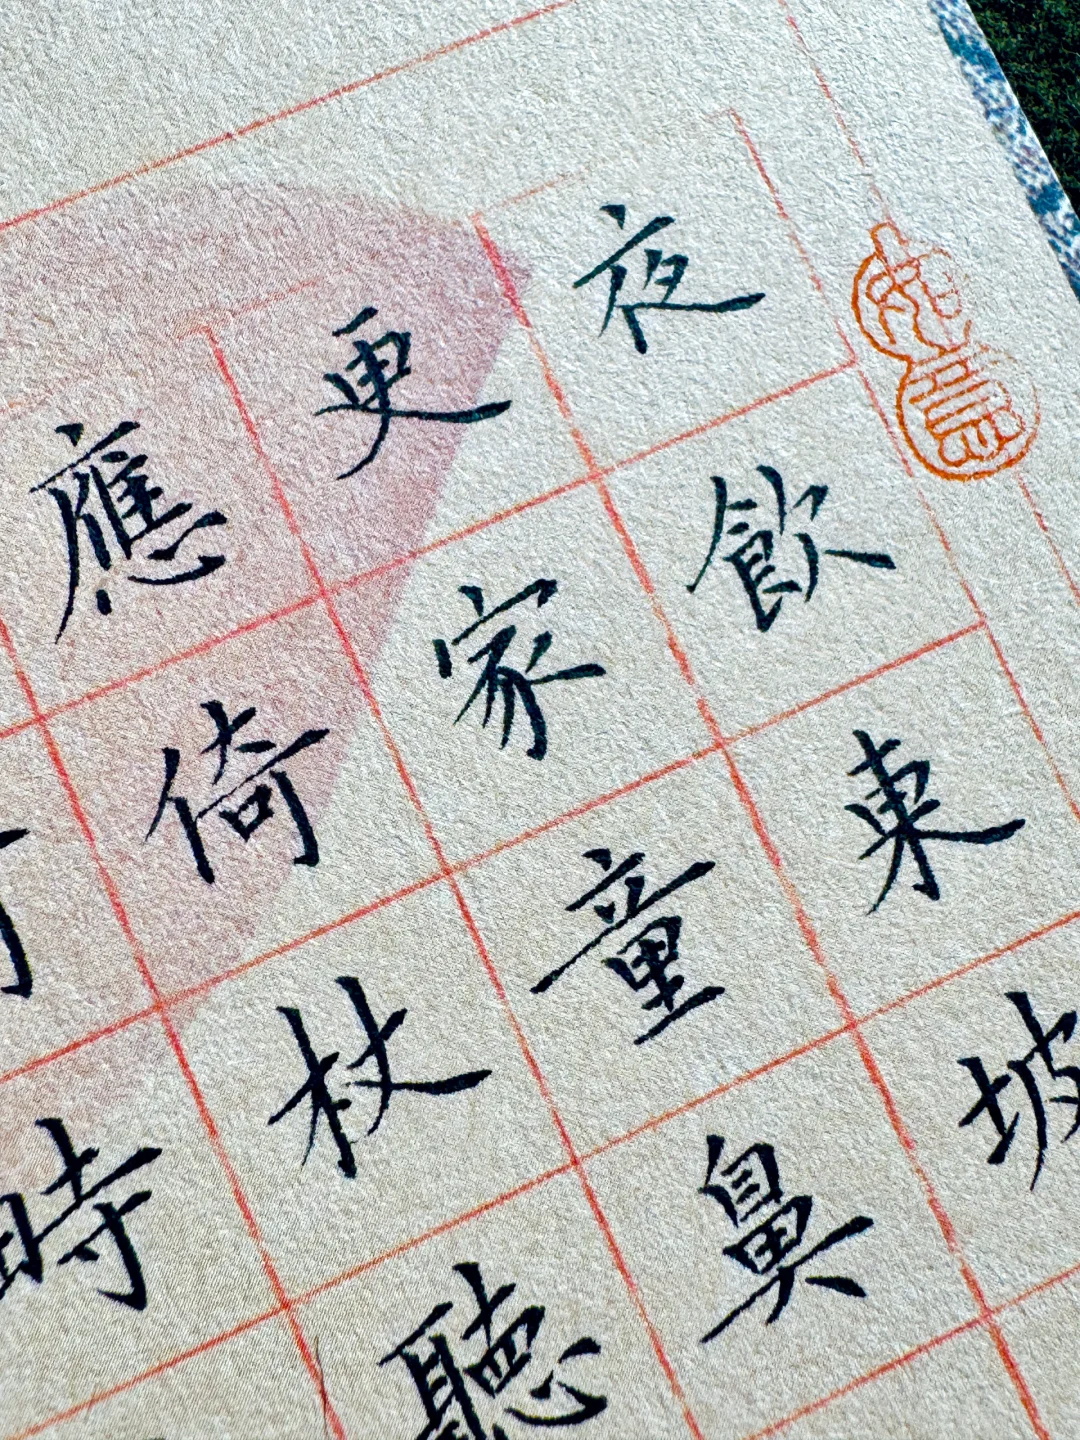 夜飲東坡
更家童鼻
應倚杖聽
時